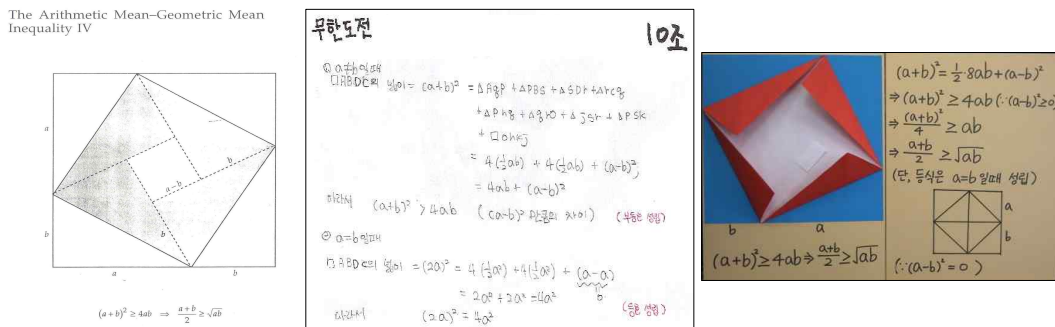 The Arithmetic Mean–Geometric Mean
Inequality IV
a
b
a−b
b
b
a
b
(a+b)² ≥ 4ab ⇒ a+b/2 ≥ √ab
무한도전
10조
① a≠b일때
□ABDC의 넓이 = (a+b)²
= 4(½ab) + 4(½ab) + (a-b)²
= 4ab + (a-b)²
따라서 (a+b)² > 4ab ((a-b)² 만큼의 차이) (부등호 성립)
② a=b일때
□ABDC의 넓이 = (2a)² = 4(½a²) + 4(½a²) + (a-a)
= 2a² + 2a² = 4a²
따라서 (2a)² = 4a² (등호 성립)
b
a
(a+b)² ≥ 4ab ⇒ a+b/2 ≥ √ab
(a+b)² = ½·8ab + (a-b)²
⇒ (a+b)² ≥ 4ab (∵(a-b)² ≥ 0)
⇒ (a+b)²/4 ≥ ab
⇒ a+b/2 ≥ √ab
(단, 등식은 a=b일때 성립)
a
b
(∵(a-b)² = 0)